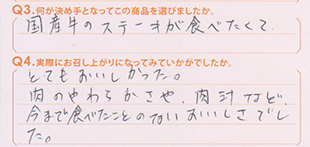 Q3.何が決め手となってこの商品を選びましたか。
国産牛のステーキが食べたくて
Q4.実際にお召し上がりになってみていかがでしたか。
とてもおいしかった。
肉のやわらかさや、肉汁など、
今まで食べたことのないおいしさでし
た。